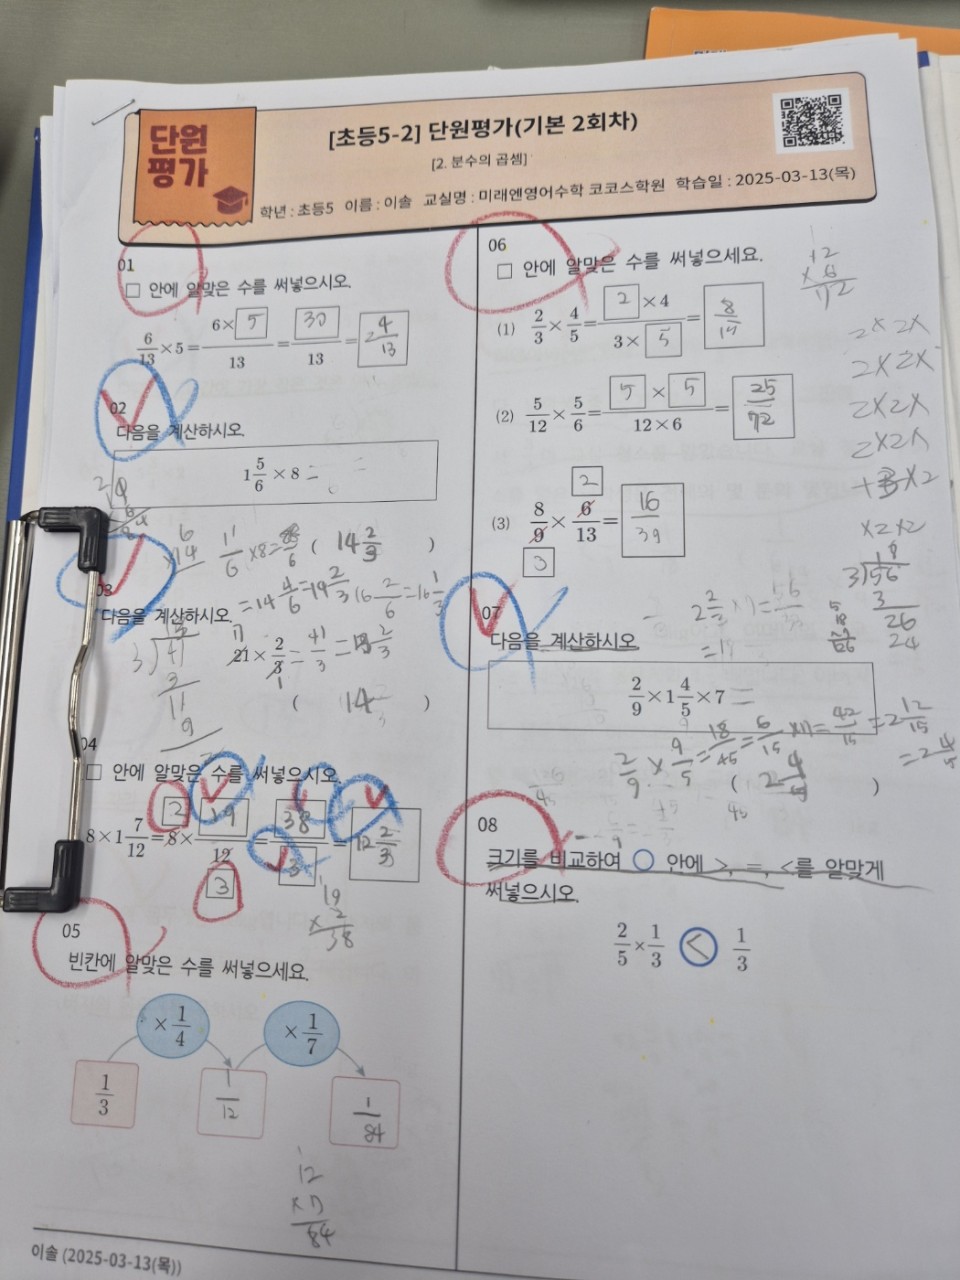 단원
평가
[초등5-2] 단원평가(기본 2회차)
[2. 분수의 곱셈]
학년 : 초등5 이름 : 이솔 교실명 : 미래엔영어수학 코코스학원 학습일 : 2025-03-13(목)
01
□ 안에 알맞은 수를 써넣으시오.
6/13 × 5 = 6× 5 / 13 = 30 / 13 = 2 4/13
02
다음을 계산하시오.
1 5/6 × 8 =
11/6 ×8=
( 14 2/3 )
= 14 4/6 = 14 2/3
16 2/6 = 16 1/3
03
다음을 계산하시오.
21 × 2/3 = 41/3 = 13 2/3
( 14 )
04
□ 안에 알맞은 수를 써넣으시오.
8 × 1 7/12 = 8 × 19 / 12 = 38 / 3 = 12 2/3
2
3
19
× 2
38
05
빈칸에 알맞은 수를 써넣으세요.
× 1/4
× 1/7
1/3
1/12
1/84
12
× 7
84
이솔 (2025-03-13(목))
06
□ 안에 알맞은 수를 써넣으세요.
12
× 6
72
(1) 2/3 × 4/5 = 2 ×4 / 3× 5 = 8/15
(2) 5/12 × 5/6 = 5 × 5 / 12×6 = 25/72
2
(3) 8/9 × 6/13 = 16/39
3
2×2×
2×2×
2×2×
2×2×
×2×2
3)56
3
26
24
07
다음을 계산하시오
2/9 × 1 4/5 × 7 =
2/9 × 9/5 = 18/45 = 6/15 ×7= 42/15 = 2 12/15
= 2 4/5
( 2 4/5 )
08
크기를 비교하여 ○ 안에 >, =, <를 알맞게
써넣으시오.
2/5 × 1/3 < 1/3